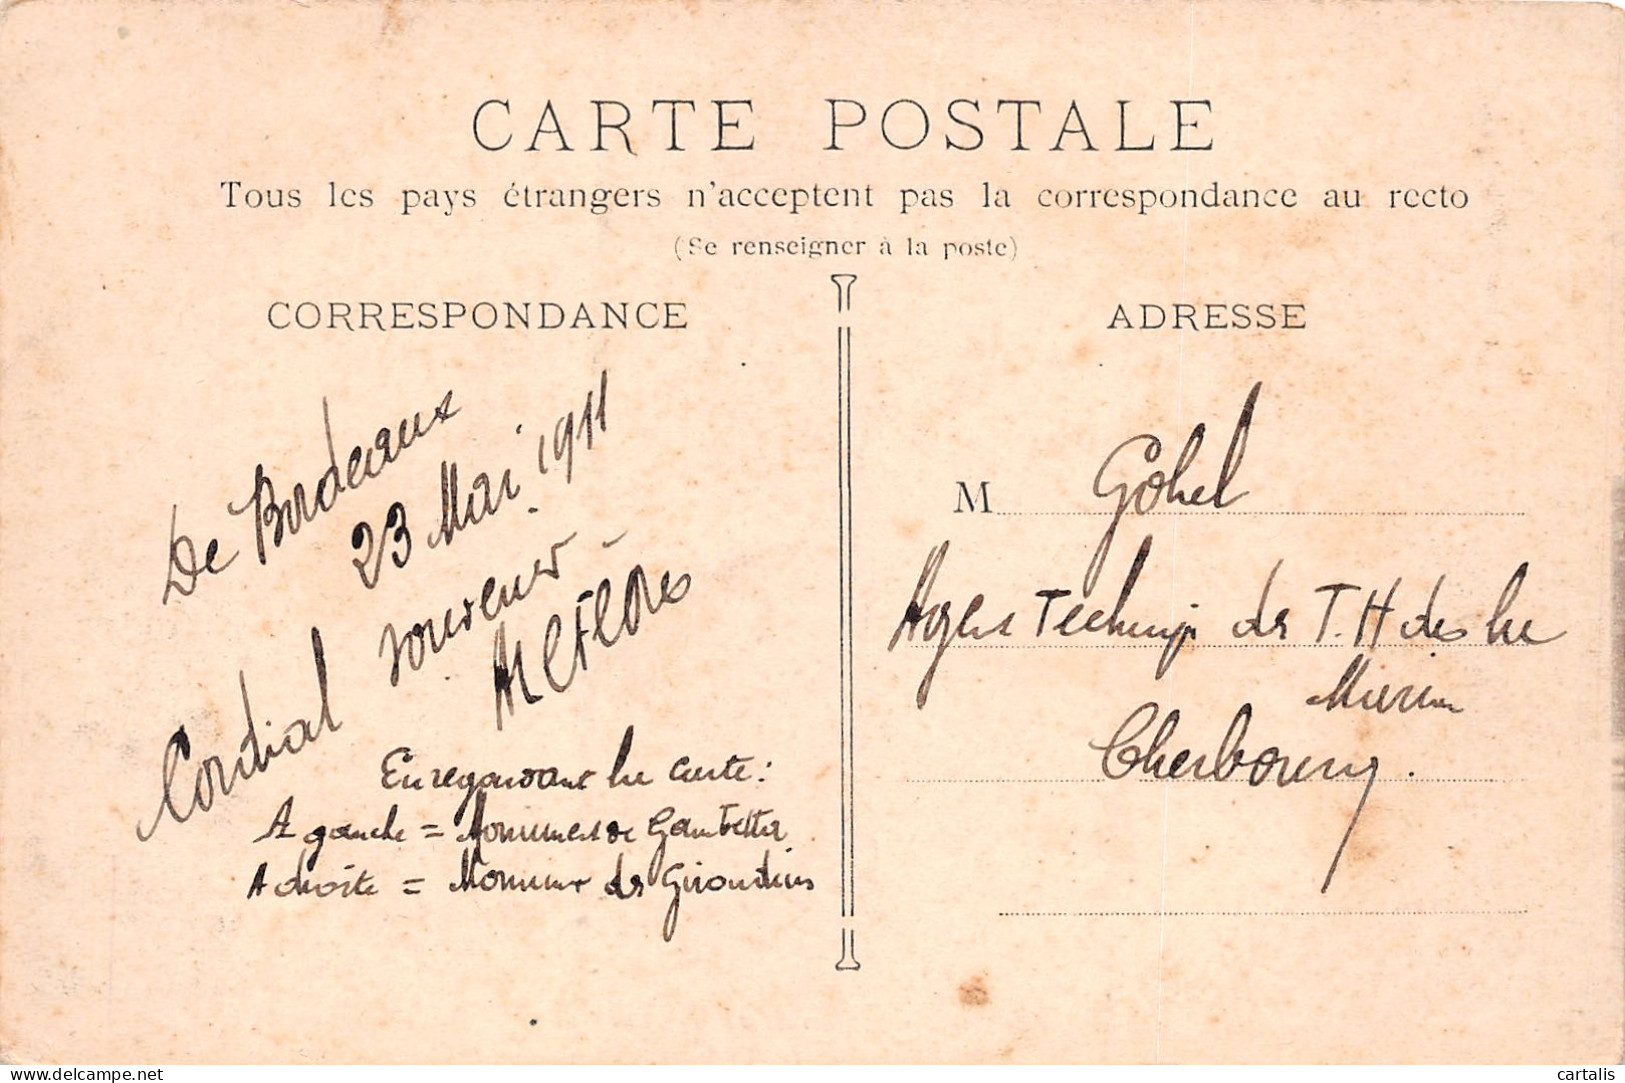 CARTE POSTALE
Tous les pays étrangers n'acceptent pas la correspondance au recto
(Se renseigner à la poste)
CORRESPONDANCE
De Bordeaux
23 Mai 1911
Cordial souvenir
En regardant la carte :
A gauche = Monument de Gambetta
A droite = Monument des Girondins
ADRESSE
M Gohel
Agent Technique des T. H de la
Marine
Cherbourg.
delcampe.net
cartalis